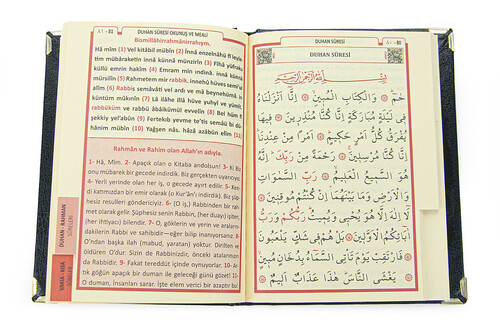 ٨١ - 81
DUHAN SÛRESİ OKUNUŞ VE MEALİ
Bismillâhirrahmânirrahıym.
Hâ mîm (1) Vel kitâbil mübîn (2) İnnâ enzelnâhü fî leyle
tim mübâraketin innâ künnâ münzirîn (3) Fîhâ yüfraku
küllü emrin hakîm (4) Emram min indinâ. innâ künnâ
mürsilîn (5) Rahmetem mir rabbik. innehû hüves semî'ul
alîm (6) Rabbis semâvâti vel ardı ve mâ beynehümâ. in
küntüm mûkınîn (7) Lâ ilâhe illâ hüve yuhyî ve yümît.
rabbüküm ve rabbü âbâikümül evvelîn (8) Bel hüm fî
şekkiy yel'abûn (9) Fertekıb yevme te'tis semâü bi dü
hânim mübîn (10) Yağşen nâs. hâzâ azâbün elîm (11)
Rahmân ve Rahîm olan Allah'ın adıyla.
1- Hâ, Mîm. 2- Apaçık olan o Kitaba andolsun! 3- Ki Biz
onu mübarek bir gecede indirdik. Biz gerçekten uyarıyoruz.
4- Yerli yerinde olan her iş, o gecede ayırt edilir. 5- Ken
di katımızdan bir emir olarak (o Kur'ân'ı indirdik). Biz şüp
hesiz resulleri göndericiyiz. 6- (O iş,) Rabbinden bir rah
met olarak gelir. Şüphesiz senin Rabbin, (her duayı) işiten,
(her ihtiyacı) bilendir. 7- O, göklerin ve yerin ve araların
dakilerin Rabbi ve sahibidir—eğer bilip inanıyorsanız. 8-
O'ndan başka ilah (mabud, yaratan) yoktur. Dirilten ve
öldüren O'dur. Sizin de Rabbinizdir, önceki atalarınızın
da Rabbidir. 9- Fakat tereddüt içinde oynuyorlar. 10- Ar
tık göğün apaçık bir duman ile geleceği günü gözet! 11-
O duman, insanları sarar. İşte elem verici bir azaptır bu.
DUHAN - RAHMAN
SÛRELERİ
٨٠ - 80
DUHAN SÛRESİ
DUHAN SÛRESİ
بِسْمِ اللّٰهِ الرَّحْمٰنِ الرَّحِيمِ
حٰمٓ ۞ وَالْكِتَابِ الْمُبِينِ ۞ اِنَّٓا اَنْزَلْنَاهُ
فِى لَيْلَةٍ مُبَارَكَةٍ اِنَّا كُنَّا مُنْذِرِينَ ۞ فِيهَا
يُفْرَقُ كُلُّ اَمْرٍ حَكِيمٍ ۞ اَمْرًا مِنْ عِنْدِنَا
اِنَّا كُنَّا مُرْسِلِينَ ۞ رَحْمَةً مِنْ رَبِّكَ اِنَّهُ
هُوَ السَّمِيعُ الْعَلِيمُ ۞ رَبِّ السَّمٰوَاتِ
وَالْاَرْضِ وَمَا بَيْنَهُمَا اِنْ كُنْتُمْ مُوقِنِينَ ۞
لَٓا اِلٰهَ اِلَّا هُوَ يُحْيِى وَيُمِيتُ رَبُّكُمْ وَرَبُّ
اٰبَٓائِكُمُ الْاَوَّلِينَ ۞ بَلْ هُمْ فِى شَكٍّ يَلْعَبُونَ
۞ فَارْتَقِبْ يَوْمَ تَأْتِى السَّمَٓاءُ بِدُخَانٍ مُبِينٍ
۞ يَغْشَى النَّاسَ هٰذَا عَذَابٌ اَلِيمٌ ۞